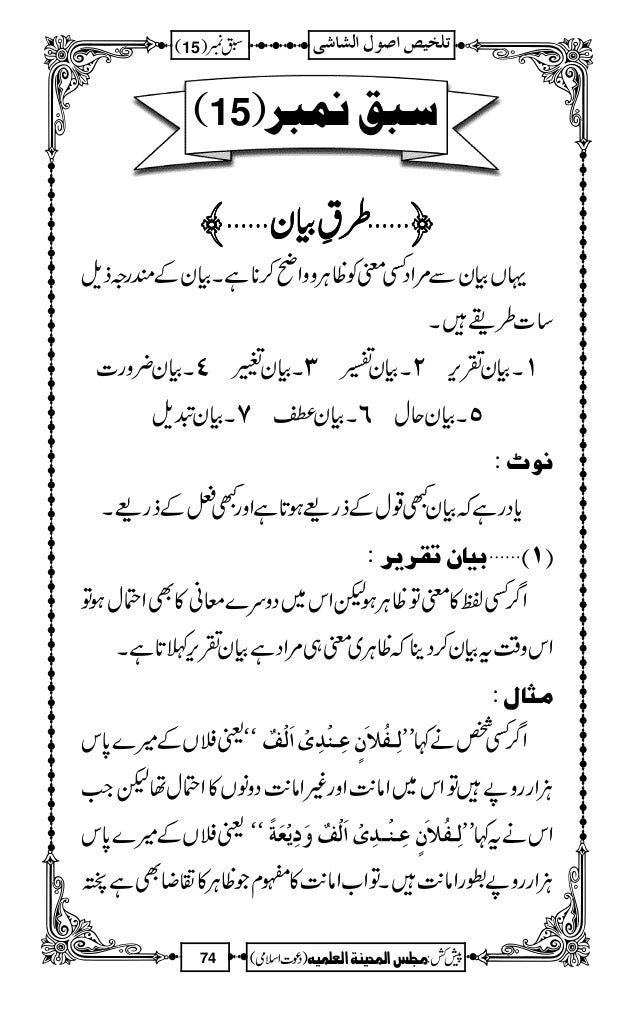 تلخیص اصول الشاشی
سبق نمبر (15)
سبق نمبر (15)
﴿......طرقِ بیان......﴾
یہاں بیان سے مراد کسی معنی کو ظاہر و واضح کرنا ہے۔ بیان کے مندرجہ ذیل
سات طریقے ہیں۔
۱۔بیان تقریر ۲۔بیان تفسیر ۳۔بیان تغییر ٤۔بیان ضرورت
۵۔بیان حال ٦۔بیان عطف ۷۔بیان تبدیل
نوٹ :
یاد رہے کہ بیان کبھی قول کے ذریعے ہوتا ہے اور کبھی فعل کے ذریعے۔
(۱)......بیان تقریر :
اگر کسی لفظ کا معنی تو ظاہر ہو لیکن اس میں دوسرے معانی کا بھی احتمال ہو تو
اس وقت یہ بیان کر دینا کہ ظاہری معنی ہی مراد ہے بیان تقریر کہلاتا ہے۔
مثال :
اگر کسی شخص نے کہا’’لِفُلاَنٍ عِنْدِیْ اَلْفٌ ‘‘یعنی فلاں کے میرے پاس
ہزار روپے ہیں تو اس میں امانت اور غیر امانت دونوں کا احتمال تھا لیکن جب
اس نے یہ کہا’’لِفُلاَنٍ عِنْدِیْ اَلْفٌ وَدِیْعَةً ‘‘ یعنی فلاں کے میرے پاس
ہزار روپے بطور امانت ہیں ۔تو اب امانت کا مفہوم جو ظاہر کا تقاضا بھی ہے پختہ
پیش کش: مجلس المدینة العلمیه (دعوت اسلامی)
74